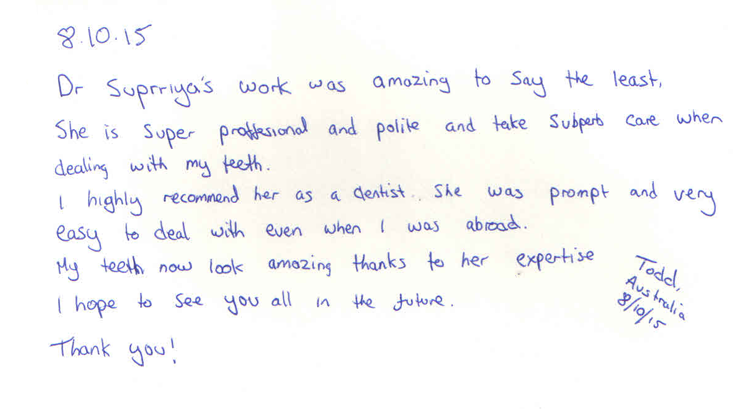 8.10.15
Dr Suprriya's work was amazing to say the least,
She is super proffesional and polite and take Subperb care when
dealing with my teeth.
I highly recommend her as a dentist. She was prompt and very
easy to deal with even when I was abroad.
My teeth now look amazing thanks to her expertise
I hope to see you all in the future.
Thank you!
Todd,
Australia
8/10/15